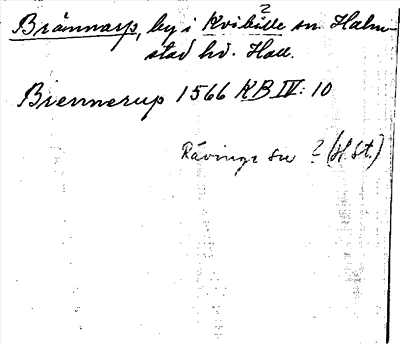 ?
Brännarp, by i Kvibille sn. Halm-
stad hd. Hall.
Brennerup 1566 KB IV: 10
Rävinge sn ? (H.St.)